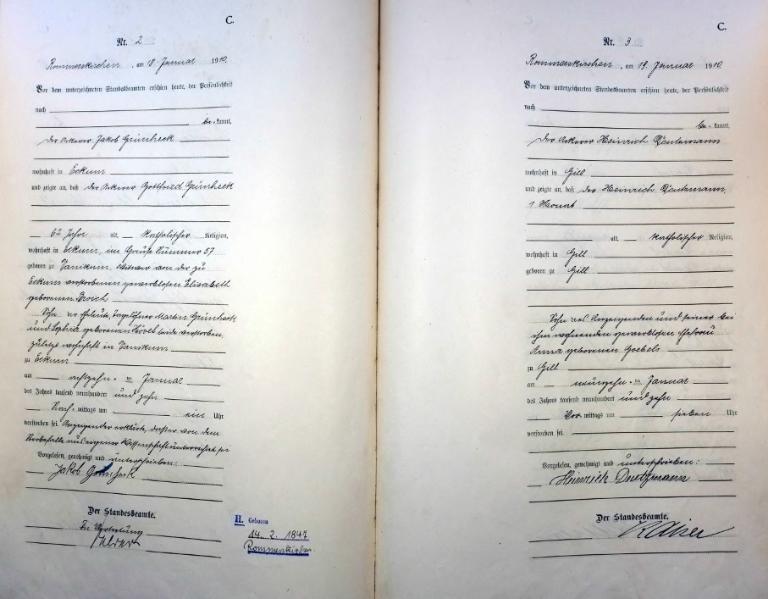 C.
Nr. 2
Rommerskirchen, am 18 Januar 1910.
Vor dem unterzeichneten Standesbeamten erschien heute, der Persönlichkeit
nach
be=kannt,
der Ackerer Jakob Grünheck
wohnhaft in Eckum
und zeigte an, daß der Ackerer Gottfried Grünheck
62 Jahre alt, katholischer Religion,
wohnhaft in Eckum, im Hause Nummer 57
geboren zu Vanikum, Witwer von der zu
Eckum verstorbenen gewerblosen Elisabeth
geborenen
Sohn der Eheleute, Tagelöhner Martin Grünheck
und Sophia geborenen beide verstorben,
zuletzt wohnhaft in Vanikum
zu Eckum
am achtzehn ten Januar
des Jahres tausend neunhundert und zehn
Nach=mittags um ein Uhr
verstorben sei. Anzeigender erklärte, daß er von dem
Sterbefalle aus eigener Wissenschaft unterrichtet sei
Vorgelesen, genehmigt und unterschrieben:
Jakob Grünheck
Der Standesbeamte.
In Vertretung
II. Geboren
14. 2. 1847
Rommerskirchen.
C.
Nr. 3
Rommerskirchen, am 19. Januar 1910.
Vor dem unterzeichneten Standesbeamten erschien heute, der Persönlichkeit
nach
be=kannt,
der Ackerer Heinrich
wohnhaft in Gill
und zeigte an, daß der Heinrich
1 Monat
alt, katholischer Religion,
wohnhaft in Gill
geboren zu Gill
Sohn des Anzeigenden und seiner bei
ihm wohnenden gewerblosen Ehefrau
Anna geborenen Goebels
zu Gill
am neunzehn ten Januar
des Jahres tausend neunhundert und zehn
Vor=mittags um sieben Uhr
verstorben sei.
Vorgelesen, genehmigt und unterschrieben:
Heinrich
Der Standesbeamte.